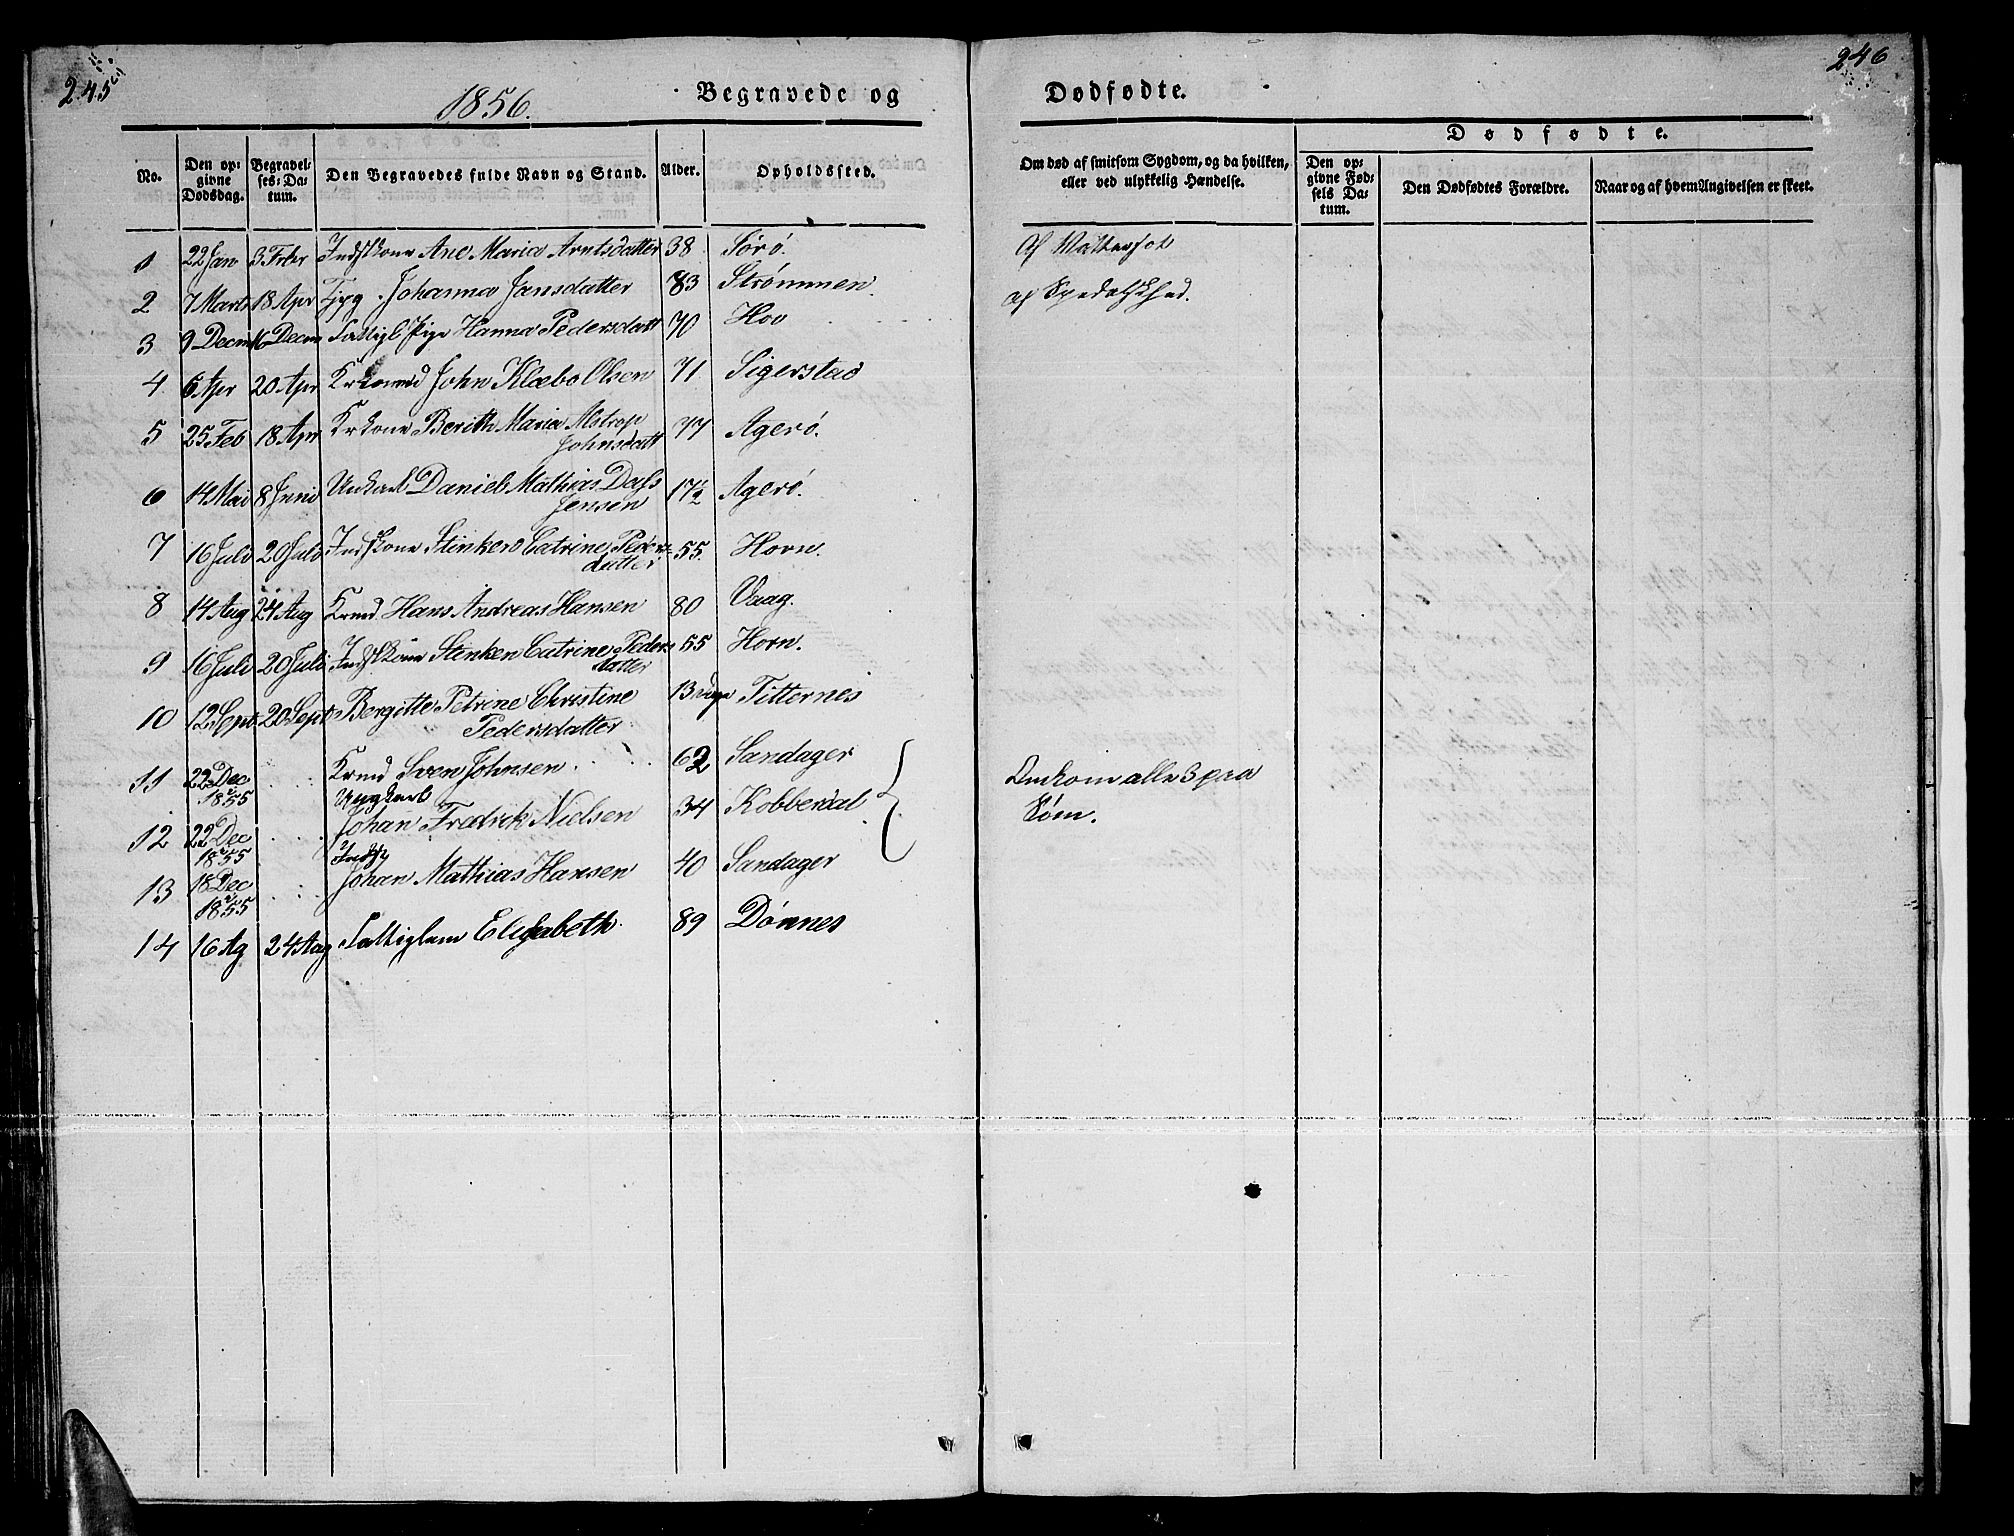 245
246
1856.
Begravede og
Dødfødte.
No.
Den opgivne Dødsdag.
Begravelses-Datum.
Den Begravedes fulde Navn og Stand.
Alder.
Opholdssted.
Om død af smitsom Sygdom, og da hvilken, eller ved ulykkelig Hændelse.
Dødfødte.
Den opgivne Fødsels Datum.
Den Dødfødtes Forældre.
Naar og af hvem Angivelsen er skeet.
1 22 Jan 3 Febr Indstkone Ane Maria Arntsdatter 38 Sørø.
2 7 Marts 18 Apr Johanna Jansdatter 83 Strømmen. af Spedalskhed.
3 9 Decm 16 Decm Fattigl Pige Hanna Pedersdatt 70 Hov
4 6 Apr 20 Apr John Klæbo Olsen 71 Sigerstad
5 25 Feb 18 Apr Krkone Berith Maria Alstrop
Johnsdatt 77 Agerø.
6 14 Mai 8 Juni Unkarl Daniel Mathias Dass
Jensen 17½ Agerø.
7 16 Juli 20 Juli Indstkone Stinken Catrine Peders-
datter 55. Horn.
8 14 Aug 24 Aug Krmd Hans Andreas Hansen 80 Vaag.
9 16 Juli 20 Juli Indstkone Stinken Catrine Peders
datter 55 Horn.
10 12 Sept 20 Sept Bergitte Petrine Christine
Pedersdatter 13 Titternes
11 22 Dec
1855 Krmd Sven Johnsen 62 Sandager
Omkom alle 3 paa
Søen.
12 22 Dec
1855 Ungkarl
Johan Fredrik Nielsen 34 Kobberdal
13 18 Dec
1855 Indst
Johan Mathias Hansen 40 Sandager
14 16 Ag 24 Aug Fattiglem Elisabeth. 89 Dønnes